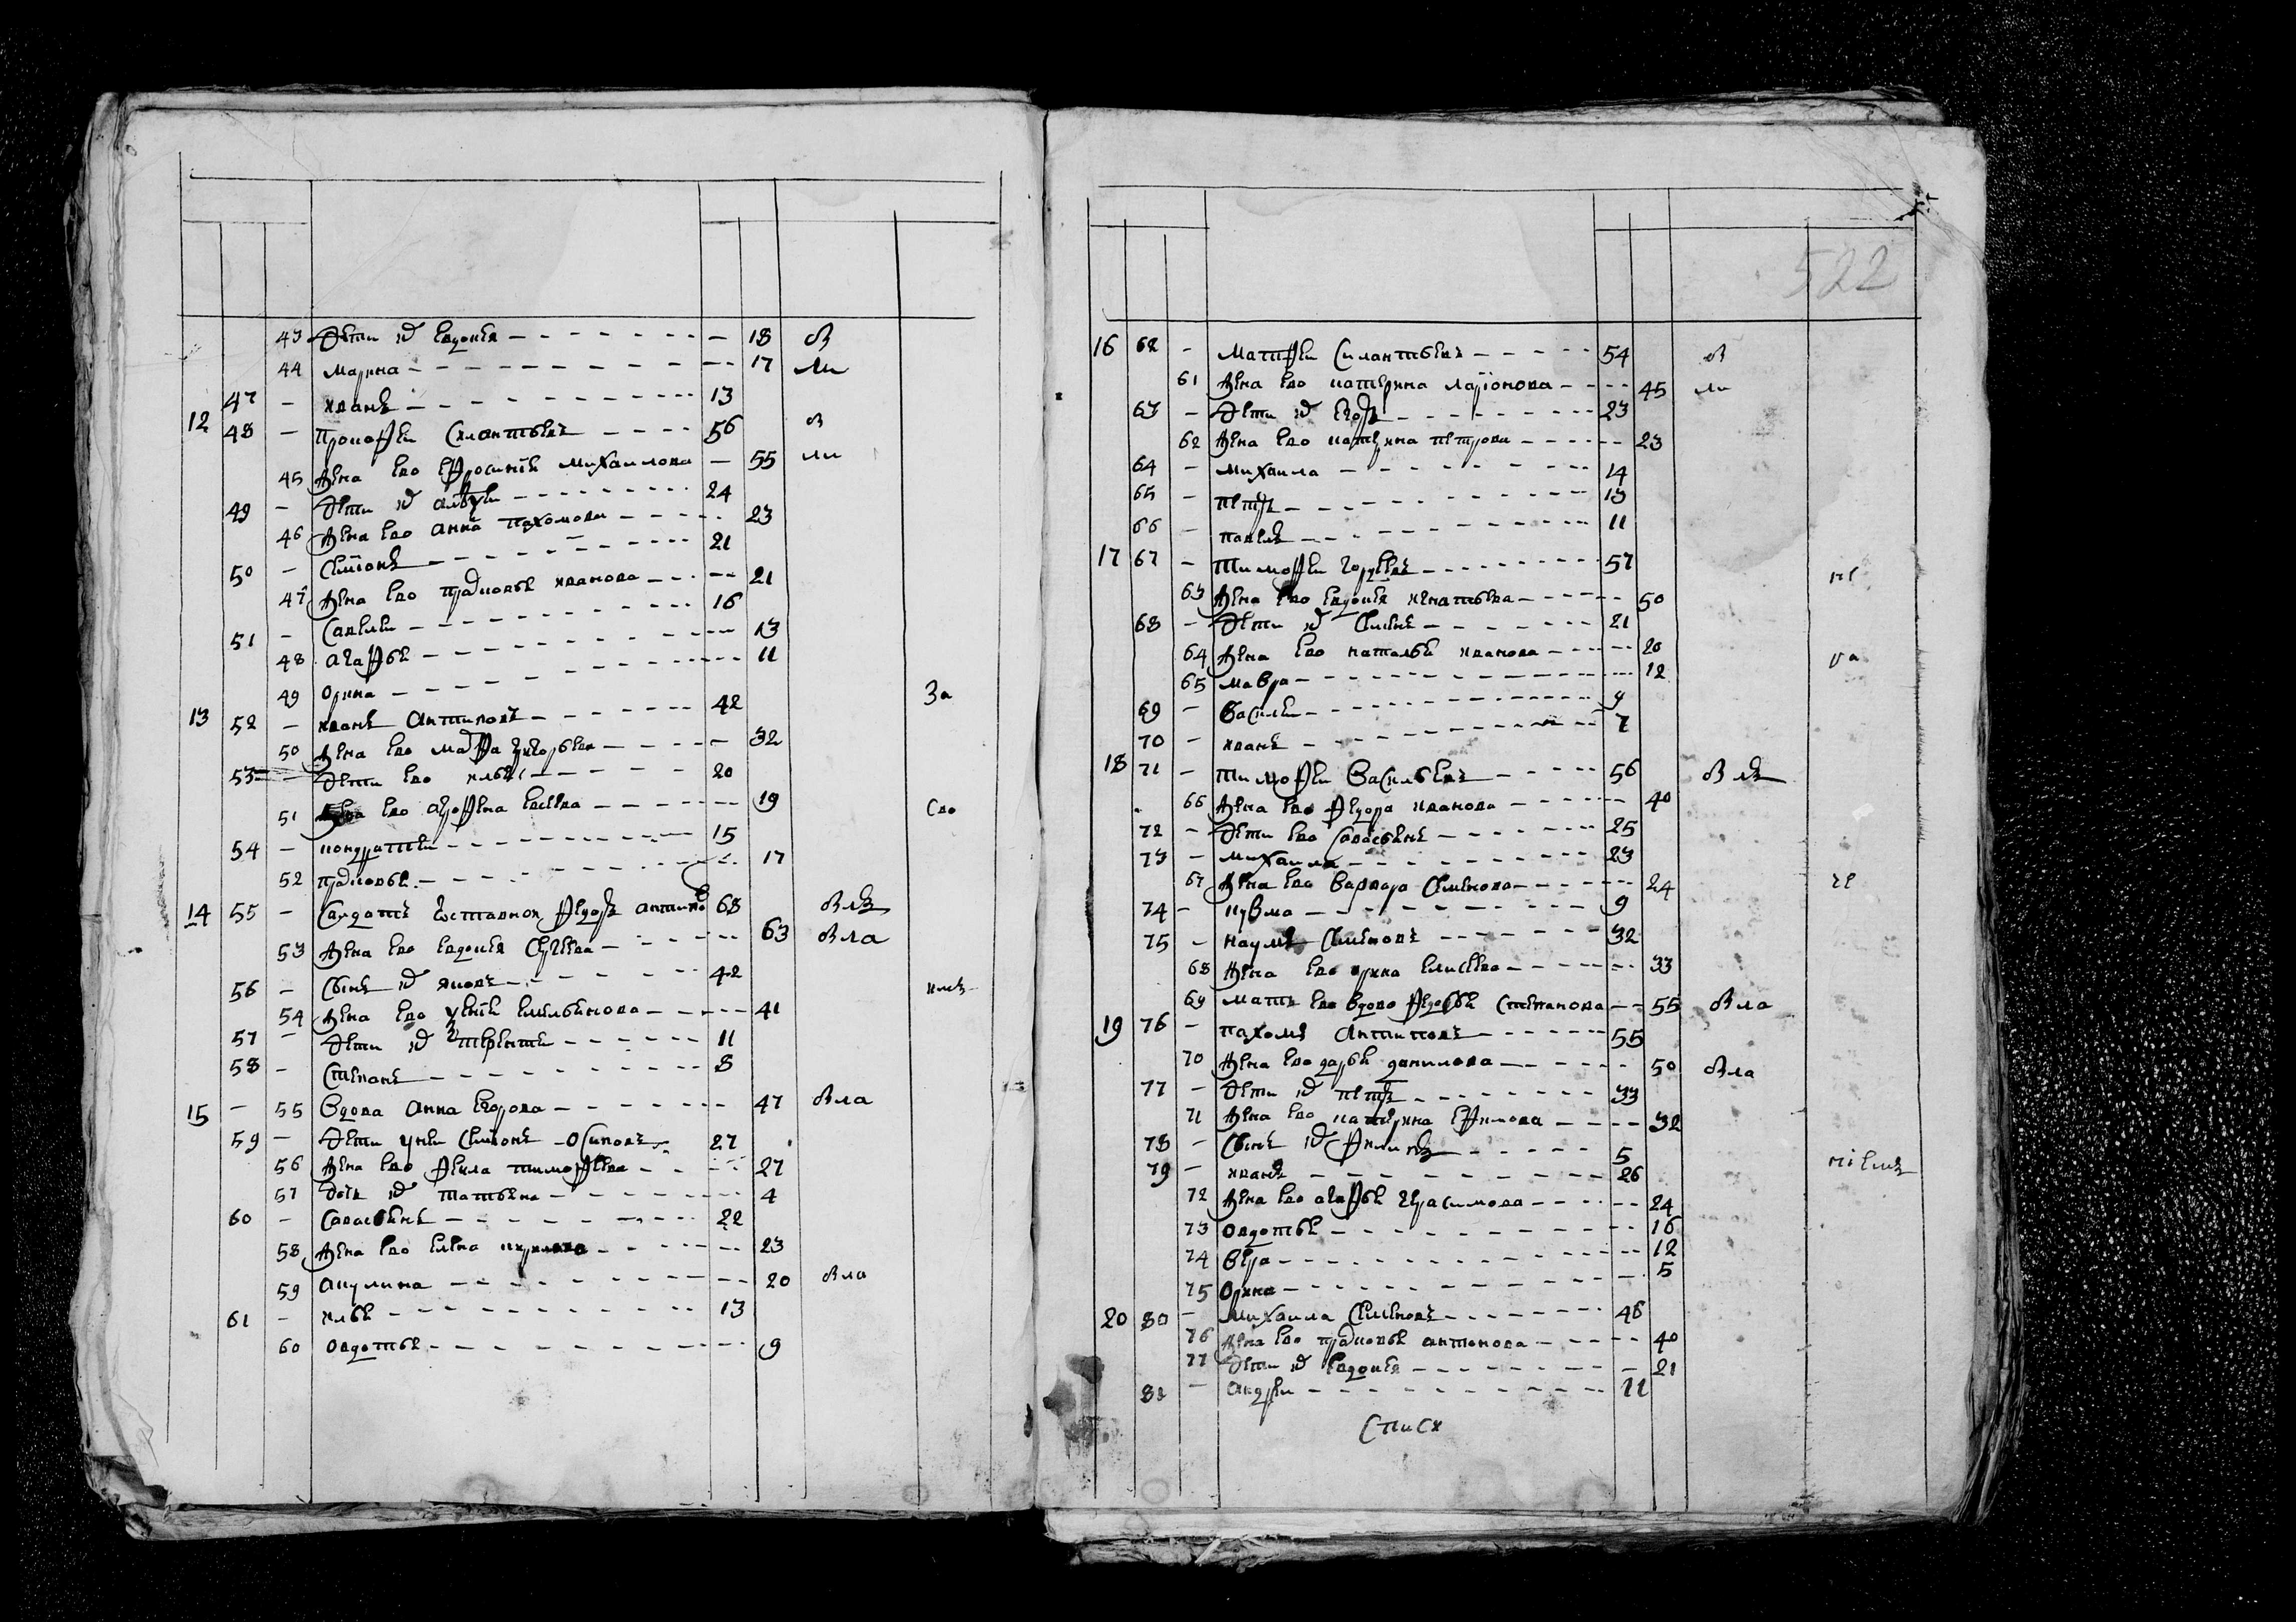 43 Дети их Евдокия — 18 в
44 Марина — 17 ли
47 — Иванъ — 13
12 48 — Прокофеи Силантьевъ — 56 в
45 Жена ево Ефросинья Михаилова — 55 ли
49 — Дети их — 24
46 Жена ево Анна Пахомова — 23
50 — Симіонъ — 21
47 Жена ево Прасковья Иванова — 21
51 — Савелеи — 16
48 Агафья — 13
49 Орина — 11
13 52 — Иванъ Антиповъ — 42 За
50 Жена ево Марфа Григорьева — 32
53 — Дети ево Илья — 20
51 Жена ево Аграфена Евсеева — 19 сво
54 — Кондратеи — 15
52 Прасковья — 17
14 55 — Салдатъ Федоръ Антипо 68 влъ
53 Жена ево Евдокия Сергеева — 63 вла
56 — Сынъ их Яковъ — 42
54 Жена ево Емельянова — 41
57 — Дети их Терентеи — 11
58 — Степанъ — 8
15 — 55 Вдова Анна Егорова — 47 вла
59 — Дети у неи Симіонъ Осиповъ 27
56 Жена ево Фекла Тимофеева — 27
57 Дочь их Татьяна — 4
60 — Савастьянъ — 22
58 Жена ево Елена — 23
59 Акулина — 20 вла
61 — Илья — 13
60 Овдотья — 9
522
16 62 — Матфеи Силантьевъ — 54 в
61 Жена ево Катерина Ларіонова — 45 ли
63 — Дети их Егоръ — 23
62 Жена ево Катерина Петрова — 23
64 — Михаила — 14
65 — Петръ — 13
66 — Павелъ — 11
17 67 — Тимофеи — 57 не
63 Жена ево Евдокия Игнатьева — 50
68 — Дети их Семенъ — 21
64 Жена ево Наталья Иванова — 20
65 Мавра — 12
69 — Василеи — 9
70 — Иванъ — 7
18 71 — Тимофеи Васильевъ — 56 влъ
66 Жена ево Федора Иванова — 40
72 — Дети ево Савастьянъ — 25
73 — Михаила — 23
67 Жена ево Варвара Семенова — 24 че
74 — Кузма — 9
75 — Наумъ Семеновъ — 32
68 Жена ево Ирина Елисеева — 33
69 Мать ево вдова Федосья Степанова — 55 вла
19 76 — Пахомъ Антиповъ — 55
70 Жена ево Дарья Данилова — 50 вла
77 — Дети их Петръ — 33
71 Жена ево Катерина Ефимова — 32
78 — Сынъ их Филипъ — 5
79 — Иванъ — 26
72 Жена ево Агафья Герасимова — 24
73 Овдотья — 16
74 Вера — 12
75 Орина — 5
20 80 — Михаила Семеновъ — 46
76 Жена ево Прасковья Антонова — 40
77 Дети их Евдокия — 21
81 — Андреи — 11